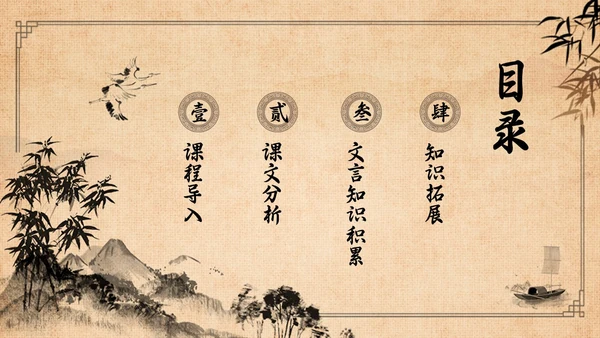 目录
壹
课程导入
贰
课文分析
叁
文言知识积累
肆
知识拓展